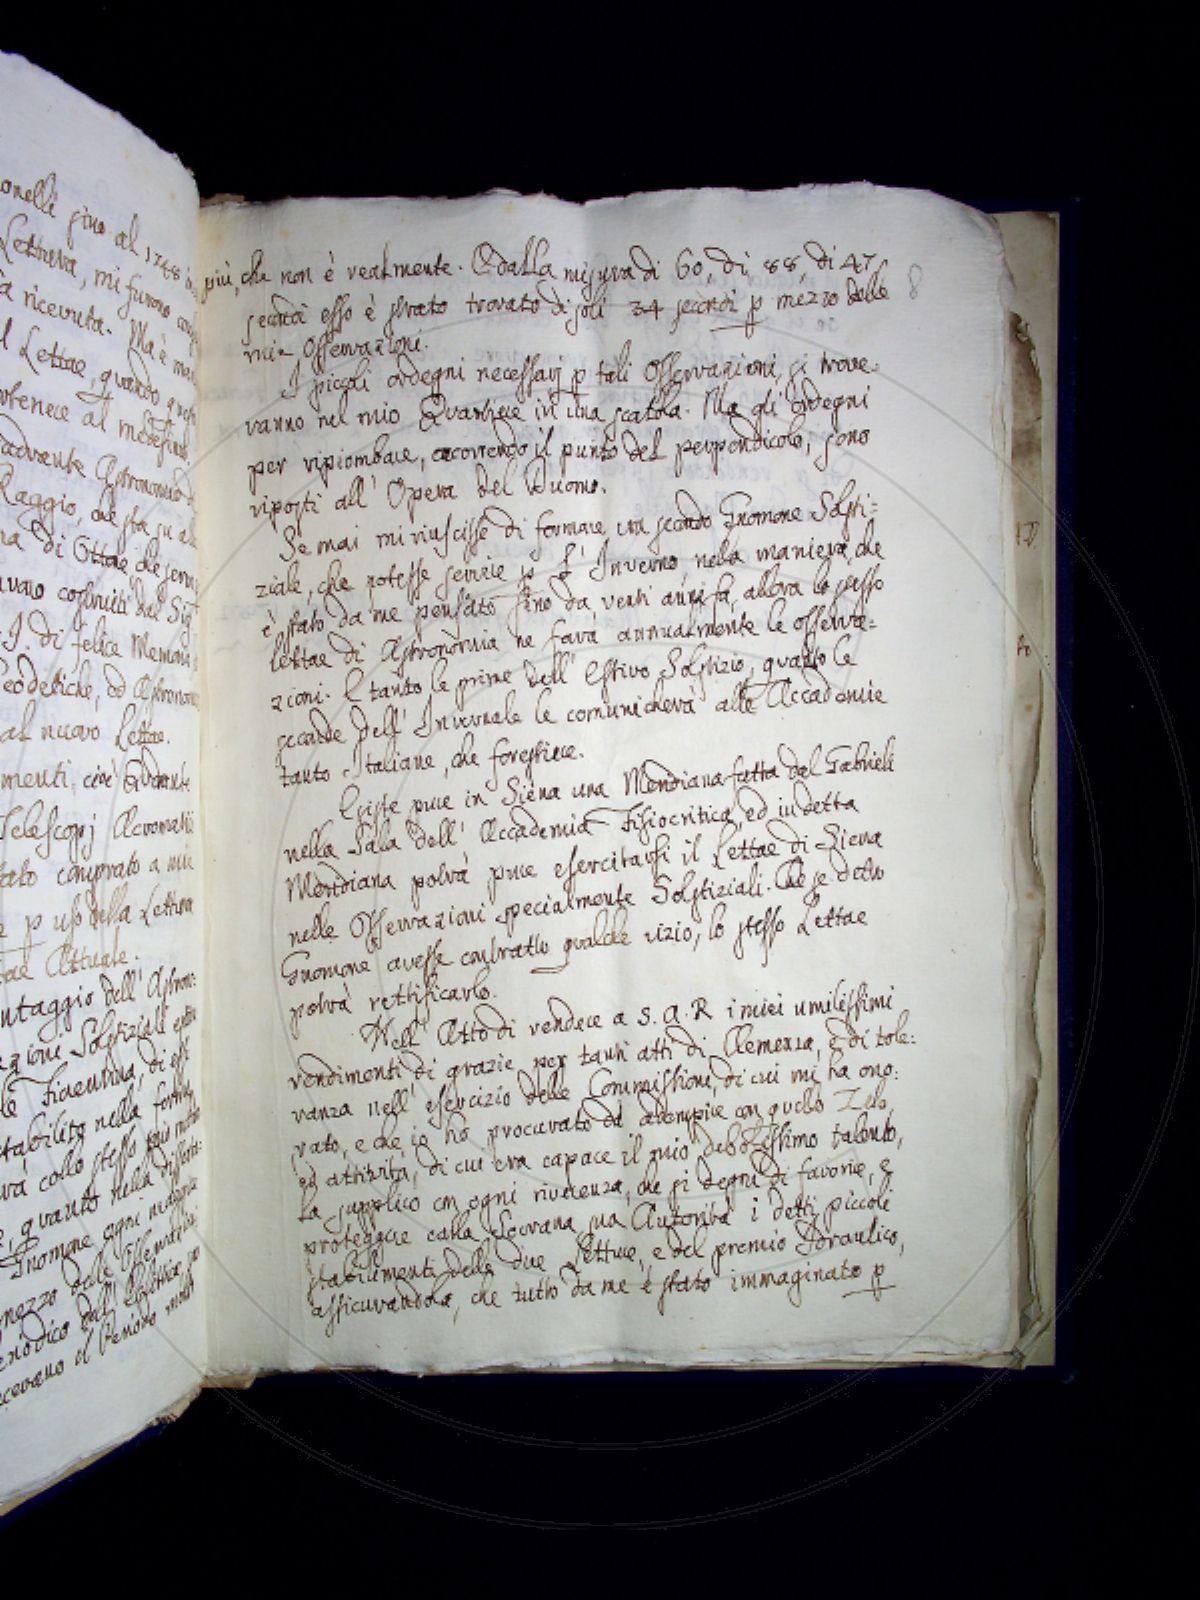 onelli sino al 1748 in
Lettura, mi furono con
a ricevuta. Ma è man
l Lettae, quando quest
rtenere al medesimo
adrante Astronomico d
Raggio, che sta su al
na di Ottae, che serv
urono costruiti dal Sig
. I. di felice Memoria
eodetiche, ed Astronom
al nuovo Lettae.
menti, cioè Quadrante
Telescopj Acromatii
tato comprato a mie
p uso della Lettura
ae Attuale.
ntaggio dell' Astron:
azioni Solstiziali
le Fiorentina, di essi
stabilita nella forma
rà collo stesso
, quanto nella
Gnomone ogni maggio
mezzo delle Osservazioni
eriodico dell' Eclittica
cevano il Periodo molti
più, che non è realmente. E dalla misura di 60, di 88, di 47
secondi esso è stato trovato di soli 34 secondi p mezzo delle
8
mie Osservazioni.
I piccoli ordegni necessarj p tali Osservazioni, si trove-
ranno nel mio Quartiere in una scatola. Ma gli ordegni
per ripiombare, occorrendo il punto del perpendicolo, sono
riposti all' Opera del Duomo.
Se mai mi riuscisse di formare un secondo Gnomone Solsti:
ziale, che potesse servire p l' Inverno nella maniera, che
è stato da me pensato fino da venti anni fa, allora lo stesso
Lettae di Astronomia ne farà annualmente le osserva:
zioni. E tanto le prime dell' Estivo Solstizio, quanto le
seconde dell' Invernale le comunicherà alle Accademie
tanto Italiane, che forestiere.
Esiste pure in Siena una Meridiana fatta dal Gabrieli
nella Sala dell' Accademia Fisiocritica, ed in detta
Meridiana potrà pure esercitarsi il Lettae di Siena
nelle Osservazioni specialmente Solstiziali. Che se detto
Gnomone avesse contratto qualche vizio, lo stesso Lettae
potrà rettificarlo.
Nell' Atto di rendere a S. A. R i miei umilissimi
rendimenti di grazie per tanti atti di Clemenza, e di tole:
ranza nell' esercizio delle Commissioni, di cui mi ha ono:
rato, e che io ho procurato di adempire con quello Zelo,
ed attività, di cui era capace il mio debolissimo talento,
La supplico con ogni riverenza, che si degni di favorire, e
proteggere colla Sovrana sua Autorità i detti piccoli
stabilimenti delle due Letture, e del premio Idraulico,
assicurandola, che tutto da me è stato immaginato p